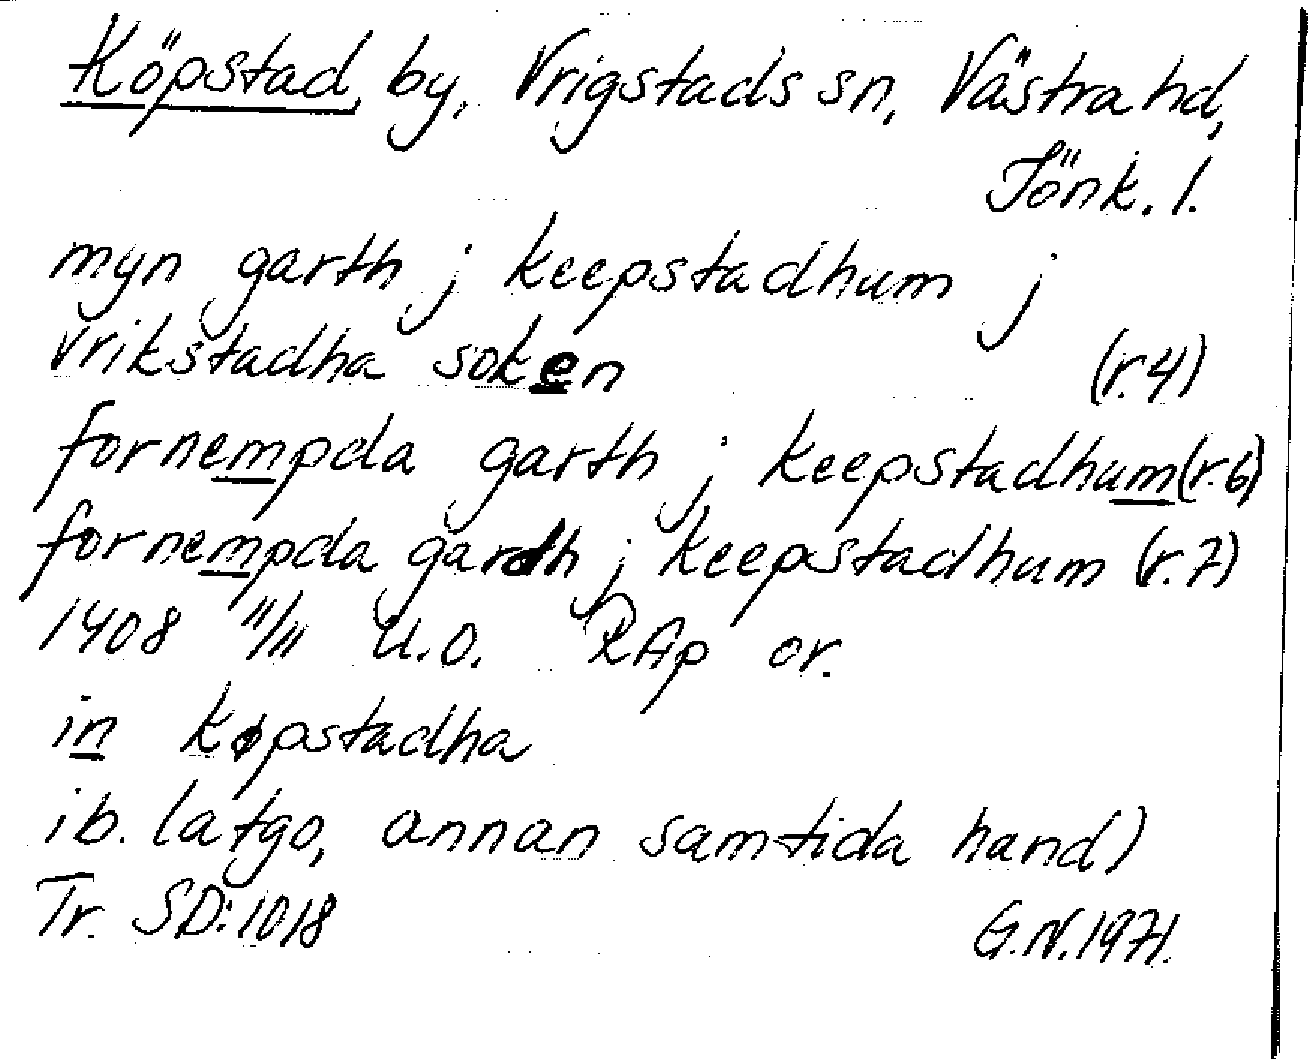 Köpstad, by, Vrigstads sn, Västra hd,
Jönk. l.
myn garth j keepstadhum j
vrikstadha soken (r.4)
fornempda garth j keepstadhum (r.6)
fornempda garth j keepstadhum (r.7)
1408 11/11 u.o. RAp or.
in køpstadha
ib. latgo, annan samtida hand)
Tr. SD: 1018 G.N. 1971.